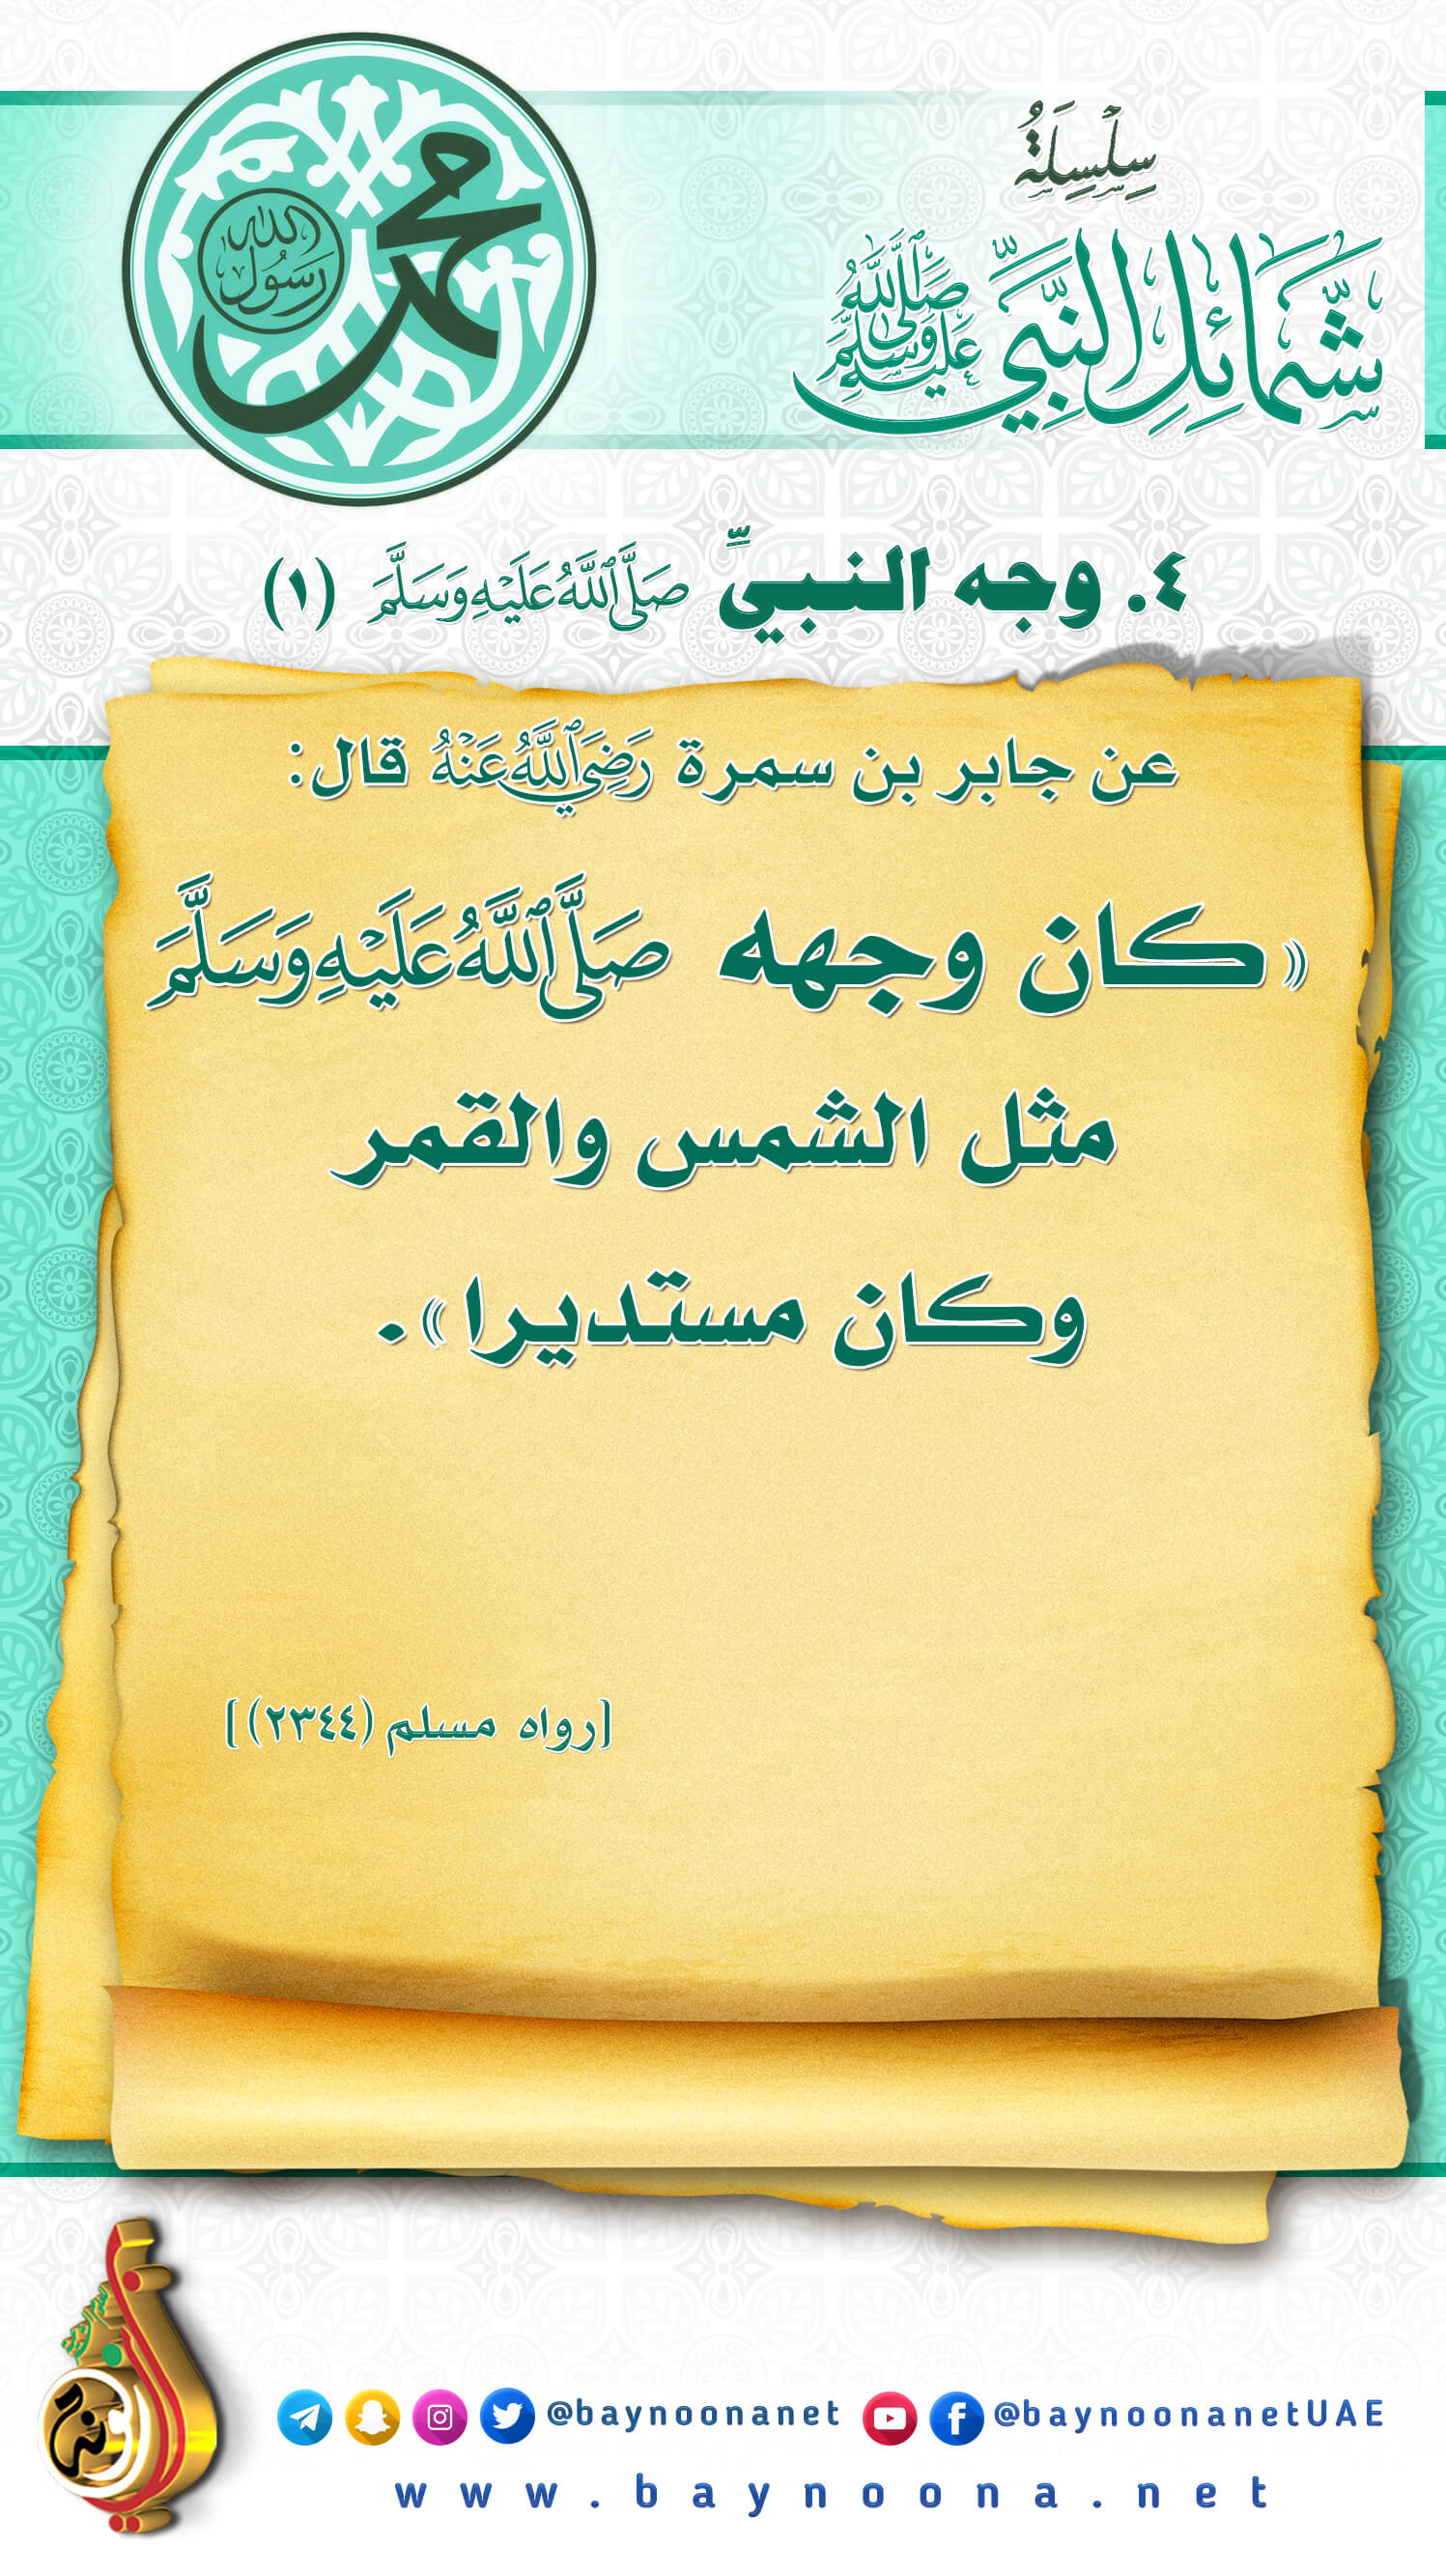 سِلْسِلَةُ
شَمَائِلِ النَّبِيِّ صَلَّى اللَّهُ عَلَيْهِ وَسَلَّمَ
محمد
رَسُولُ
الله
٤. وجه النبيِّ صَلَّى اللَّهُ عَلَيْهِ وَسَلَّمَ (١)
عن جابر بن سمرة رَضِيَ اللَّهُ عَنْهُ قال:
«كان وجهه صَلَّى اللَّهُ عَلَيْهِ وَسَلَّمَ
مثل الشمس والقمر
وكان مستديرا».
[رواه مسلم (٢٣٤٤)]
@baynoonanet @baynoonanetUAE
www.baynoona.net